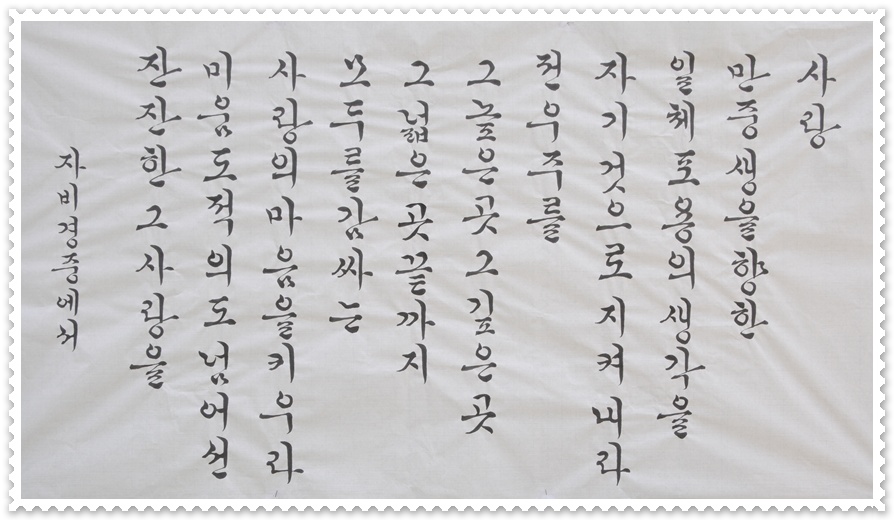 사랑
만중생을향한
일체포용의생각을
자기것으로지켜내라
전우주를
그높은곳그깊은곳
그넓은곳끝까지
모두를감싸는
사랑의마음을키우라
미움도적의도넘어선
잔잔한그사랑을
자비경중에서